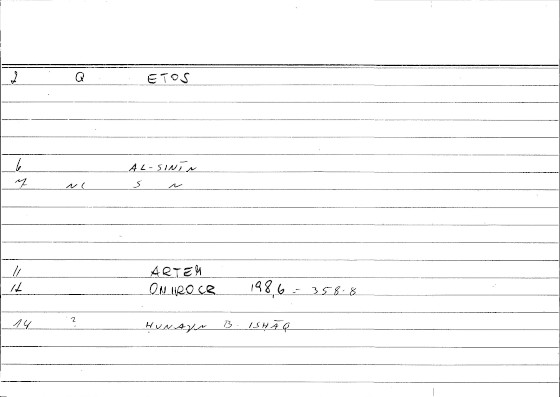 2 Q ETOS
6 AL-SINĪN
7 NC S N
11 ARTEM
12 ONIROCR 198,6 = 358.8
14 ? HUNAYN B. ISHĀQ